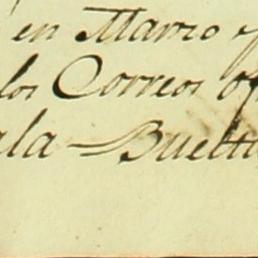 en Marzo
los Correos
ala Buelta